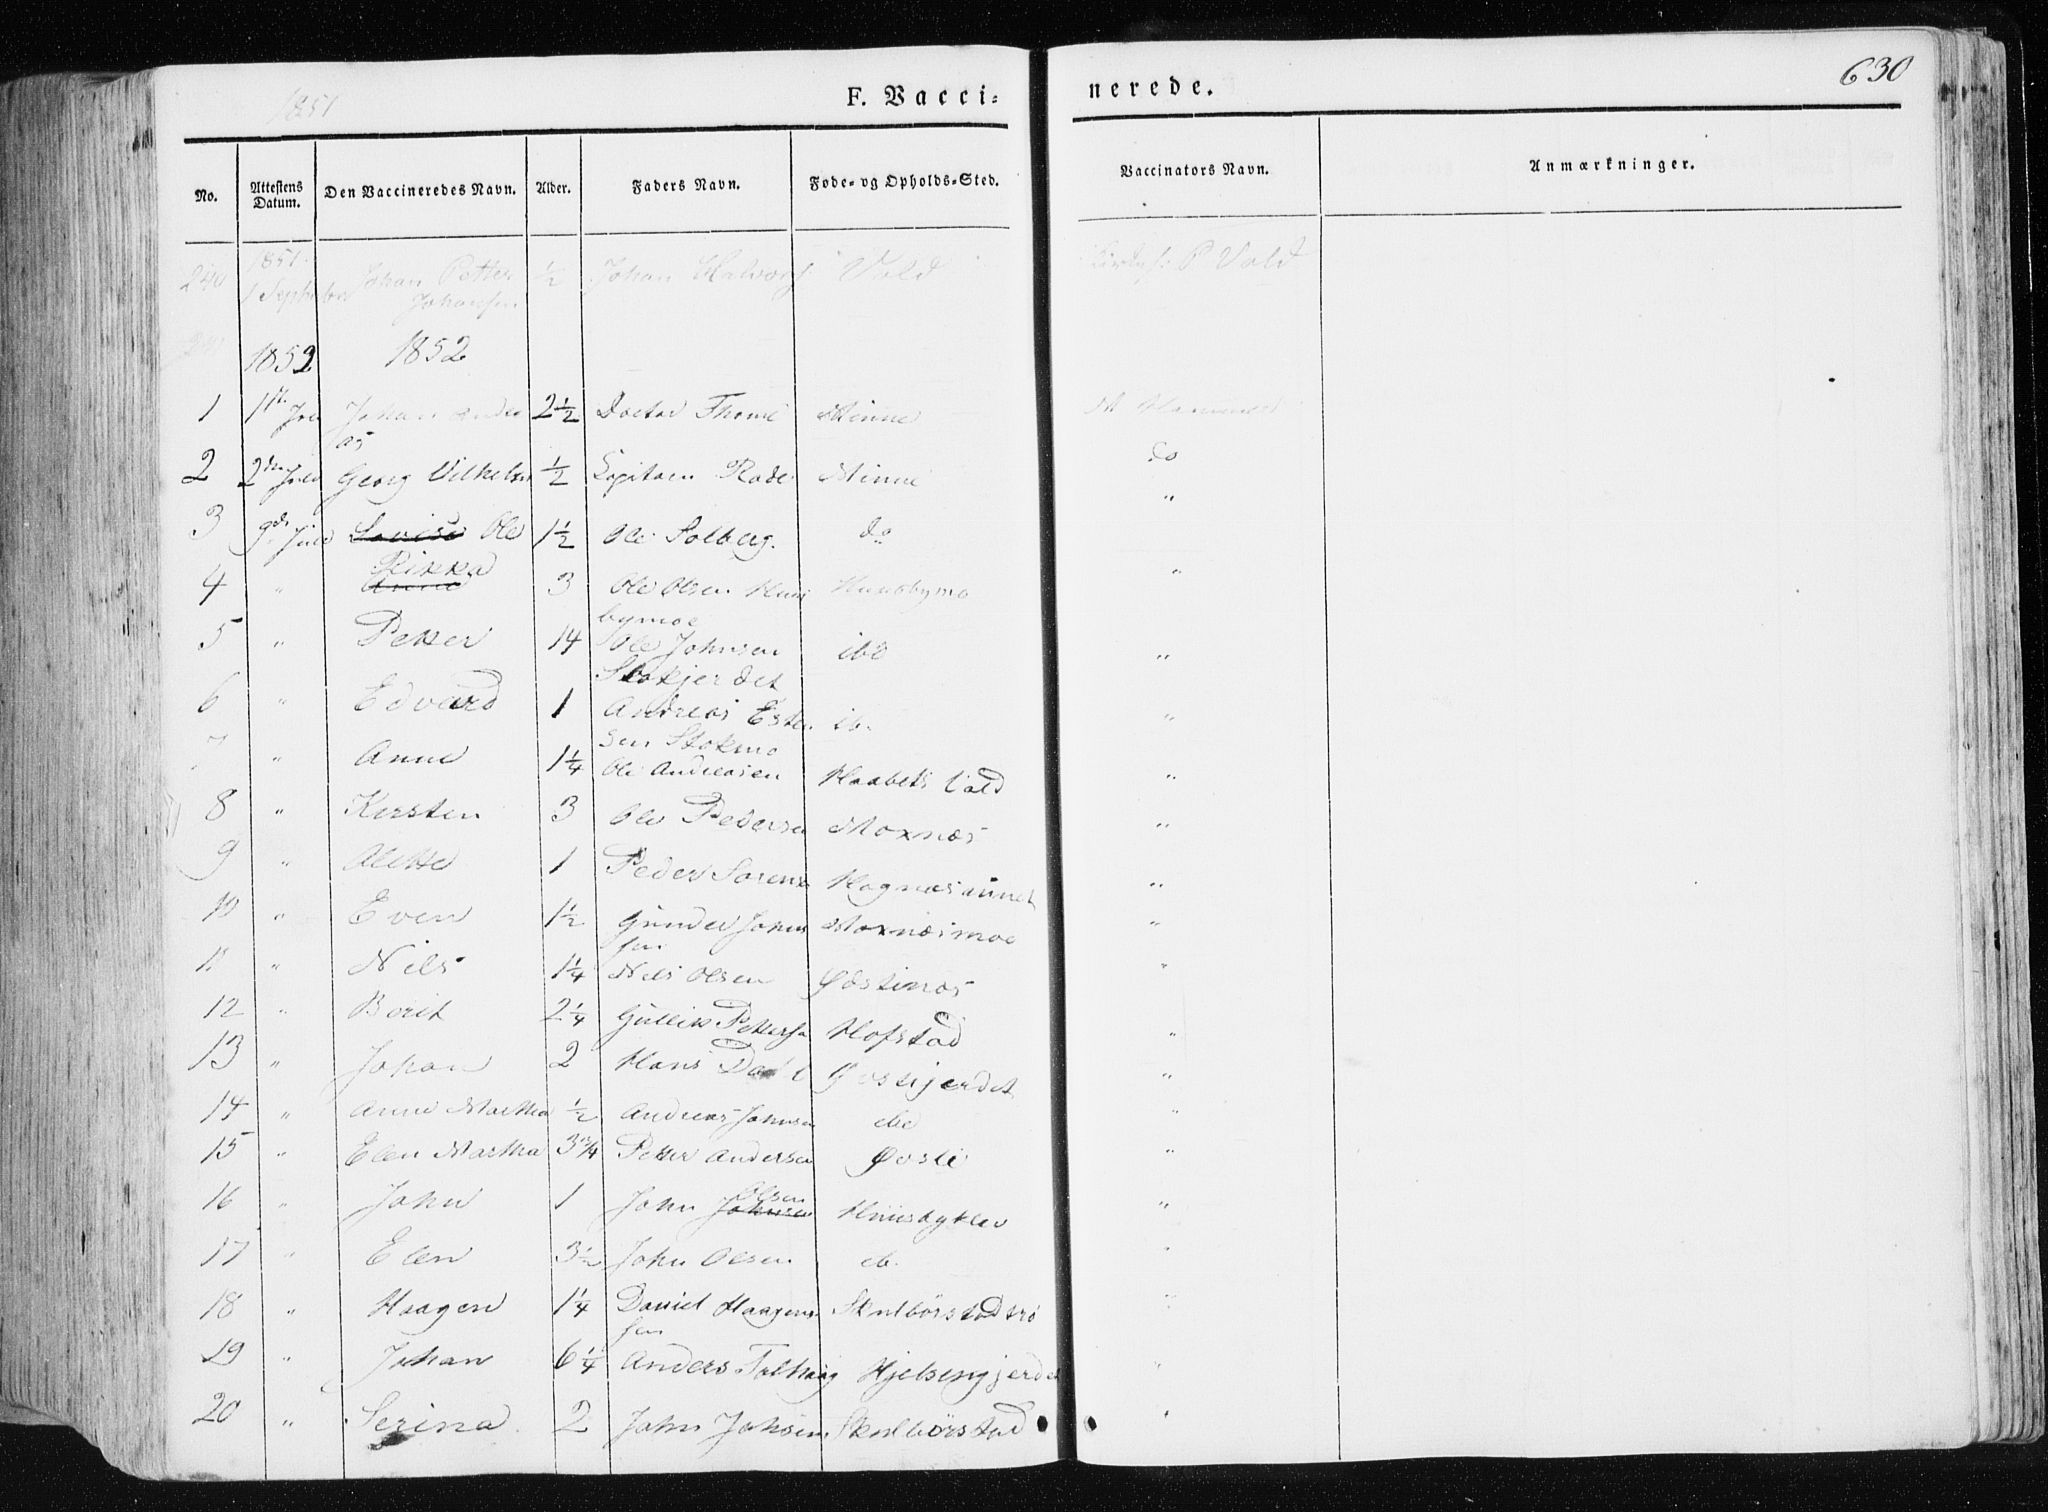 630
1851
F. Vacci= nerede.
No. Attestens Datum. Den Vaccineredes Navn. Alder. Faders Navn. Føde- og Opholds-Sted. Vaccinators Navn. Anmærkninger.
240 1851 1 Septbr Johan Petter Johansen ½ Johan Halvors Vold P Vold
241
1852 1852
1 1ste Johan Andreas 2½ Doctor Thome Minne
2 2den Georg Vilhelm ½ Capitaen Rode Minne do
3 9de Lovise Ole 1½ Ole Solberg. do "
4 " Anne Rikka 3 Ole Olsen Huusbymoe Huusbymo "
5 " Petter 14 Ole Johnsen Stokjerdet ibd "
6 " Edvard 1 Andreas Estensen Stokmo ib. "
7 " Anne 1¼ Ole Andreasen Haabets Vald "
8 " Kersten 3 Ole Pedersen Moxnæs "
9 " Alette 1 Peder Sorens Hognesaunet "
10 " Even 1½ Gunder Johnsen Moxnæsmoe "
11 " Nils 1¼ Nils Olsen "
12 " Berit 2¼ Gullik Pettersen Hofstad "
13 " Johan 2 Hans Dahl "
14 " Anne Martha ½ Andreas Johnsen ibd "
15 " Elen Martha 3¾ Petter Andersen Øvsli "
16 " John 1 John Johnsen Olsen "
17 " Elen 3½ John Olsen ib. "
18 " Haagen 1¼ Daniel Haagensen Skulbørstadtrø "
19 " Johan 6¼ Anders Hjelsengjerdet "
20 " Serina 2 John Johnsen Skulbørstad "